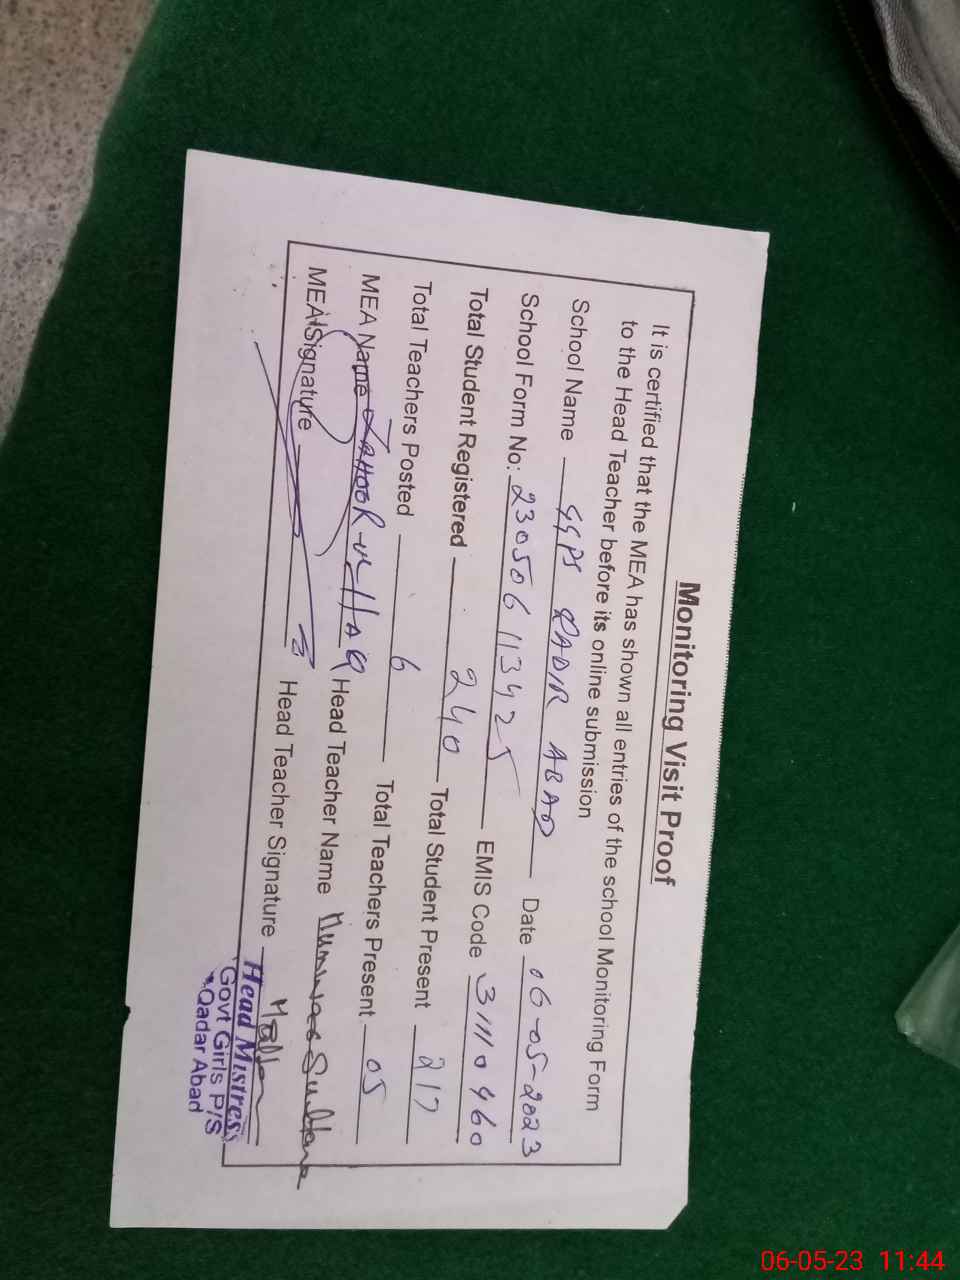 Monitoring Visit Proof
It is certified that the MEA has shown all entries of the school Monitoring Form
to the Head Teacher before its online submission
School Name GGPS QADIR ABAD Date 06-05-2023
School Form No: 230506113425 EMIS Code 31110460
Total Student Registered 240 Total Student Present 217
Total Teachers Posted 6 Total Teachers Present 05
MEA Name ZAHOOR ul HAQ Head Teacher Name Sultana
MEA Signature Head Teacher Signature
Head Mistress
Govt Girls P/S
Qadar Abad
06-05-23 11:44